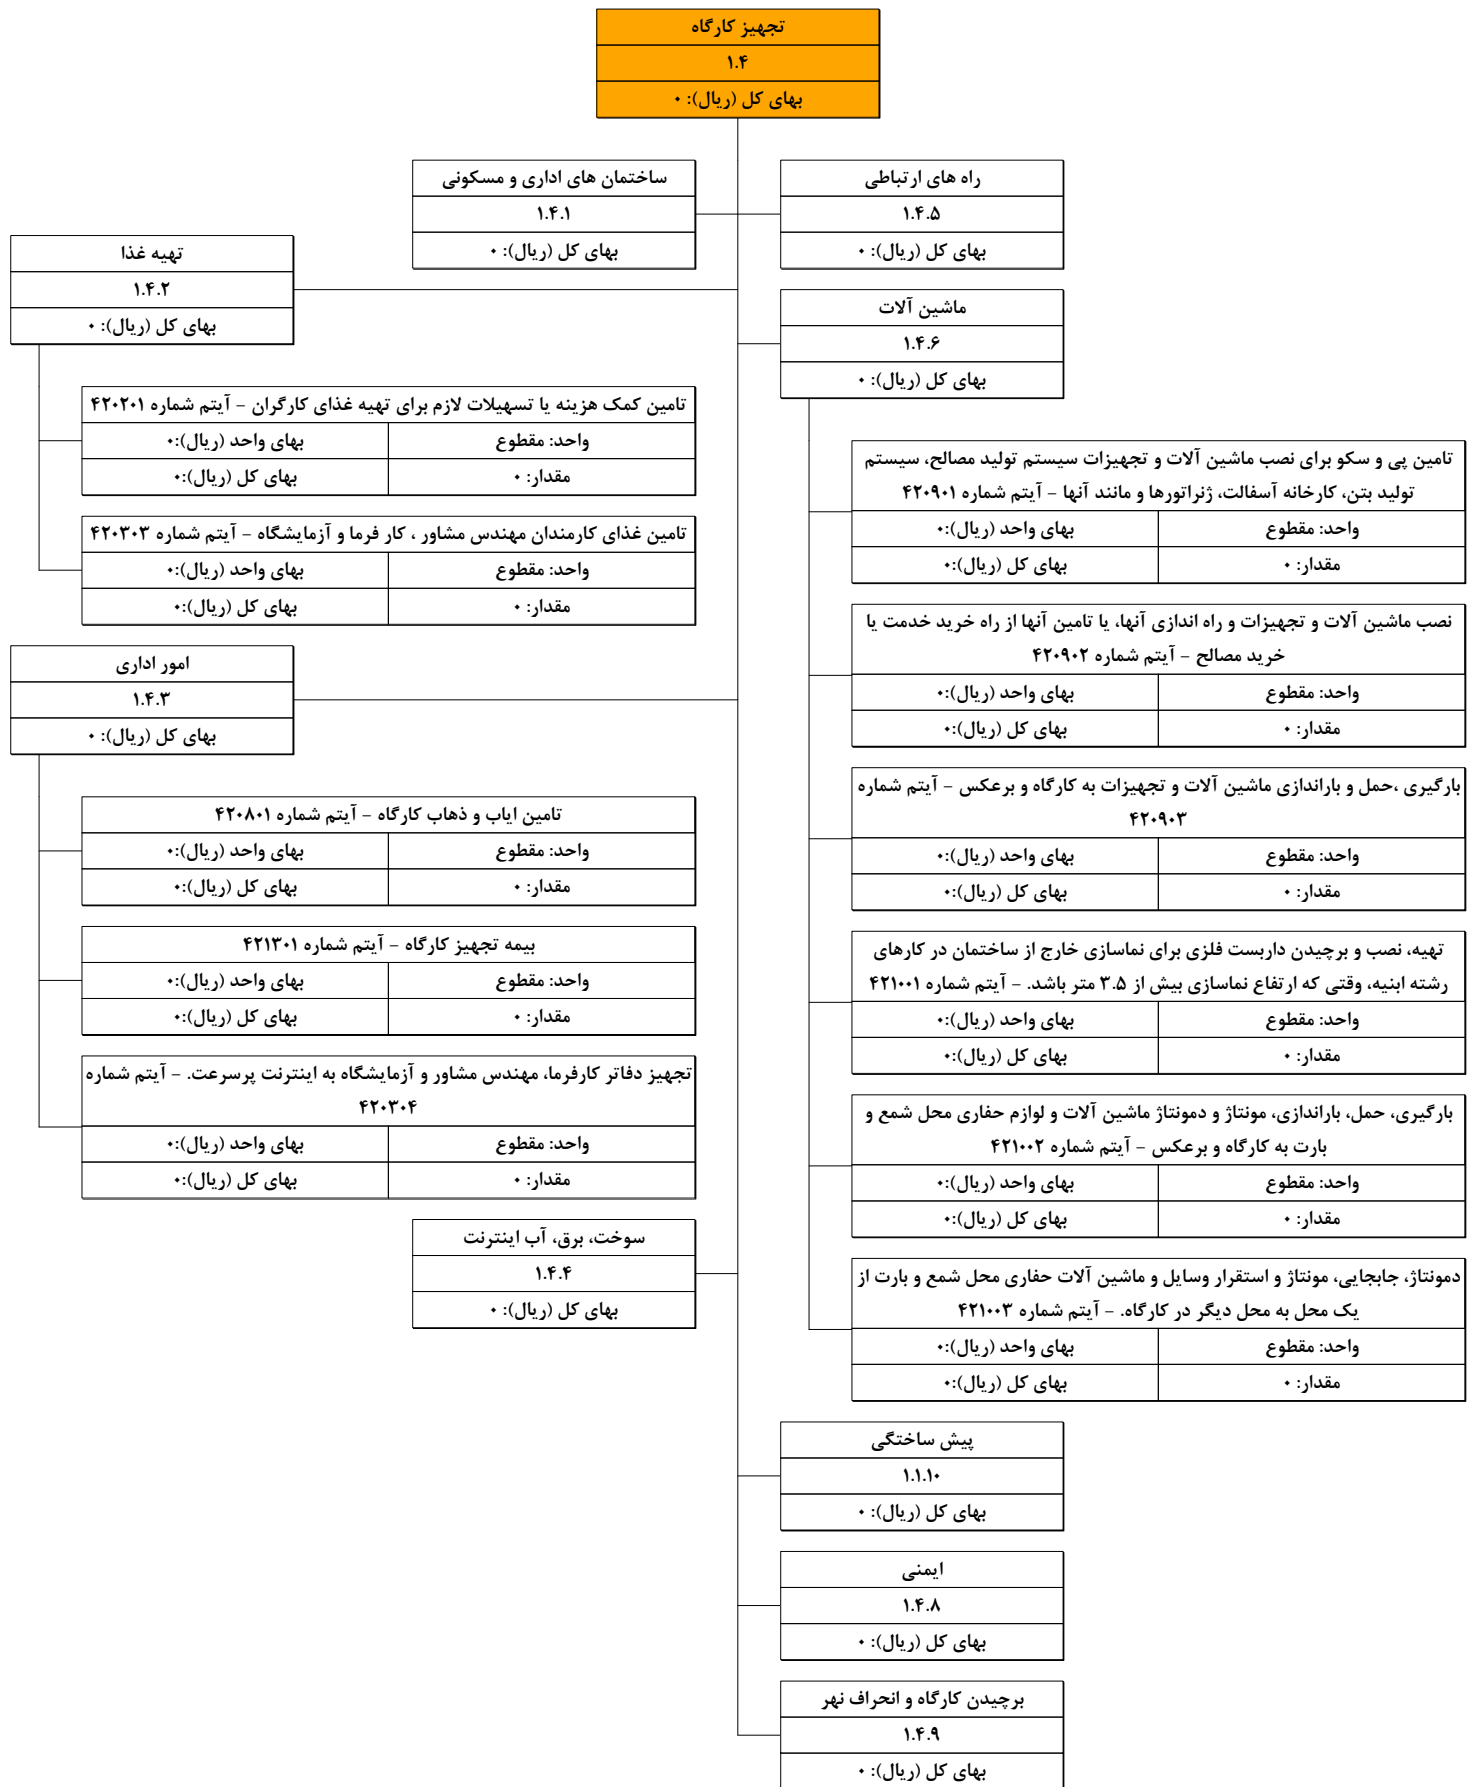 تجهیز کارگاه
۱.۴
بهای کل (ریال): ۰
ساختمان های اداری و مسکونی
۱.۴.۱
بهای کل (ریال): ۰
تهیه غذا
۱.۴.۲
بهای کل (ریال): ۰
تامین کمک هزینه یا تسهیلات لازم برای تهیه غذای کارگران - آیتم شماره ۴۲۰۲۰۱
واحد: مقطوع بهای واحد (ریال):۰
مقدار: ۰ بهای کل (ریال):۰
تامین غذای کارمندان مهندس مشاور ، کار فرما و آزمایشگاه - آیتم شماره ۴۲۰۳۰۳
واحد: مقطوع بهای واحد (ریال):۰
مقدار: ۰ بهای کل (ریال):۰
امور اداری
۱.۴.۳
بهای کل (ریال): ۰
تامین ایاب و ذهاب کارگاه - آیتم شماره ۴۲۰۸۰۱
واحد: مقطوع بهای واحد (ریال):۰
مقدار: ۰ بهای کل (ریال):۰
بیمه تجهیز کارگاه - آیتم شماره ۴۲۱۳۰۱
واحد: مقطوع بهای واحد (ریال):۰
مقدار: ۰ بهای کل (ریال):۰
تجهیز دفاتر کارفرما، مهندس مشاور و آزمایشگاه به اینترنت پرسرعت. - آیتم شماره
۴۲۰۳۰۴
واحد: مقطوع بهای واحد (ریال):۰
مقدار: ۰ بهای کل (ریال):۰
سوخت، برق، آب اینترنت
۱.۴.۴
بهای کل (ریال): ۰
راه های ارتباطی
۱.۴.۵
بهای کل (ریال): ۰
ماشین آلات
۱.۴.۶
بهای کل (ریال): ۰
تامین پی و سکو برای نصب ماشین آلات و تجهیزات سیستم تولید مصالح، سیستم
تولید بتن، کارخانه آسفالت، ژنراتورها و مانند آنها - آیتم شماره ۴۲۰۹۰۱
واحد: مقطوع بهای واحد (ریال):۰
مقدار: ۰ بهای کل (ریال):۰
نصب ماشین آلات و تجهیزات و راه اندازی آنها، یا تامین آنها از راه خرید خدمت یا
خرید مصالح - آیتم شماره ۴۲۰۹۰۲
واحد: مقطوع بهای واحد (ریال):۰
مقدار: ۰ بهای کل (ریال):۰
بارگیری ،حمل و باراندازی ماشین آلات و تجهیزات به کارگاه و برعکس - آیتم شماره
۴۲۰۹۰۳
واحد: مقطوع بهای واحد (ریال):۰
مقدار: ۰ بهای کل (ریال):۰
تهیه، نصب و برچیدن داربست فلزی برای نماسازی خارج از ساختمان در کارهای
رشته ابنیه، وقتی که ارتفاع نماسازی بیش از ۳.۵ متر باشد. - آیتم شماره ۴۲۱۰۰۱
واحد: مقطوع بهای واحد (ریال):۰
مقدار: ۰ بهای کل (ریال):۰
بارگیری، حمل، باراندازی، مونتاژ و دمونتاژ ماشین آلات و لوازم حفاری محل شمع و
بارت به کارگاه و برعکس - آیتم شماره ۴۲۱۰۰۲
واحد: مقطوع بهای واحد (ریال):۰
مقدار: ۰ بهای کل (ریال):۰
دمونتاژ، جابجایی، مونتاژ و استقرار وسایل و ماشین آلات حفاری محل شمع و بارت از
یک محل به محل دیگر در کارگاه. - آیتم شماره ۴۲۱۰۰۳
واحد: مقطوع بهای واحد (ریال):۰
مقدار: ۰ بهای کل (ریال):۰
پیش ساختگی
۱.۱.۱۰
بهای کل (ریال): ۰
ایمنی
۱.۴.۸
بهای کل (ریال): ۰
برچیدن کارگاه و انحراف نهر
۱.۴.۹
بهای کل (ریال): ۰